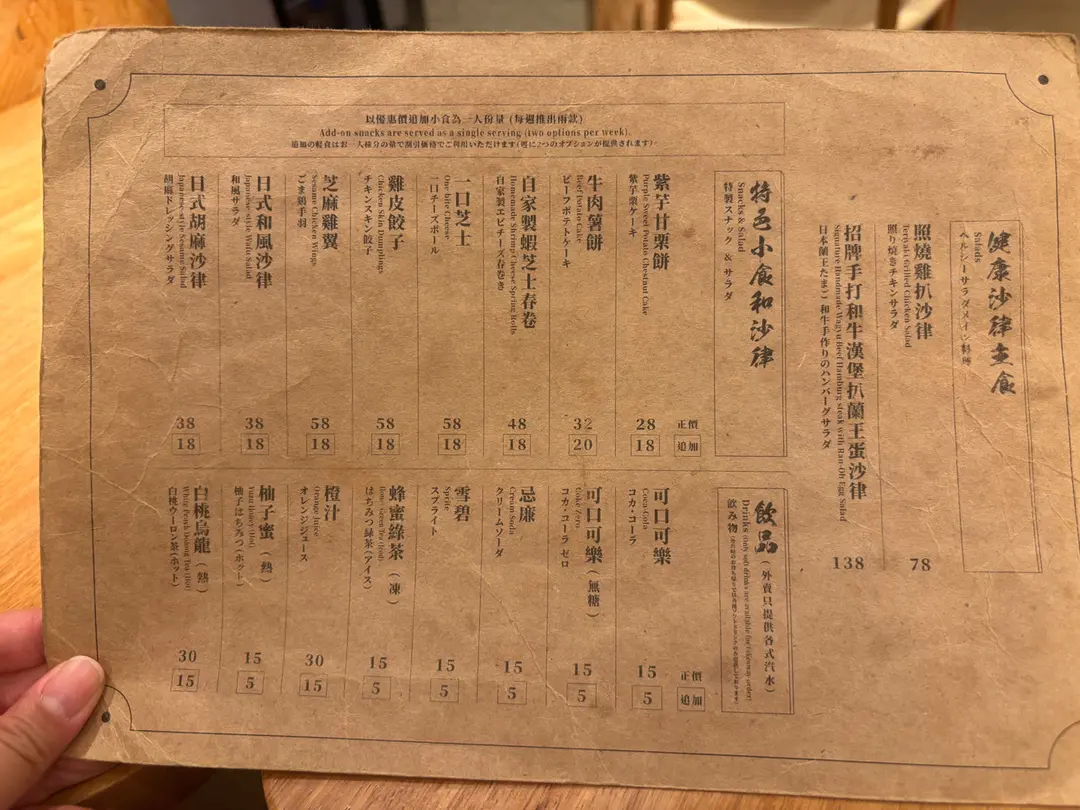 健康沙律主食
Salads
ヘルシーサラダメイン料理
照燒雞扒沙律
Teriyaki Grilled Chicken Salad
照り焼きチキンサラダ
78
招牌手打和牛漢堡扒蘭王蛋沙律
Signature Handmade Wagyu Beef Hamburg steak with Ran-Oh Egg Salad
日本蘭王たまご 和牛手作りのハンバーグサラダ
138
以優惠價追加小食為一人份量 (每週推出兩款)
Add-on snacks are served as a single serving (two options per week).
追加の軽食はお一人様分の量で割引価格でご利用いただけます(週に2つのオプションが提供されます)。
特色小食和沙律
Snacks & Salad
特製スナック & サラダ
正價
追加
紫芋甘栗餅
Purple Sweet Potato Chestnut Cake
紫芋栗ケーキ
28
18
牛肉薯餅
Beef Potato Cake
ビーフポテトケーキ
32
20
自家製蝦芝士春卷
Homemade Shrimp Cheese Spring Rolls
自家製エビチーズ春巻き
48
18
一口芝士
One bite Cheese
一口チーズボール
58
18
雞皮餃子
Chicken Skin Dumplings
チキンスキン餃子
58
18
芝麻雞翼
Sesame Chicken Wings
ごま鶏手羽
58
18
日式和風沙律
Japanese-style Wafu Salad
和風サラダ
38
18
日式胡麻沙律
Japanese-style Sesame Salad
胡麻ドレッシングサラダ
38
18
飲品 (外賣只提供各式汽水)
Drinks (Only soft drinks are available for takeaway orders)
飲み物
正價
追加
可口可樂
Coca-Cola
コカ・コーラ
15
5
可口可樂 (無糖)
Coke Zero
コカ・コーラ ゼロ
15
5
忌廉
Cream Soda
クリームソーダ
15
5
雪碧
Sprite
スプライト
15
5
蜂蜜綠茶 (凍)
Honey Green Tea (Iced)
はちみつ緑茶 (アイス)
15
5
橙汁
Orange Juice
オレンジジュース
30
15
柚子蜜 (熱)
Yuzu Honey (Hot)
柚子はちみつ (ホット)
15
5
白桃烏龍 (熱)
White Peach Oolong Tea (Hot)
白桃ウーロン茶 (ホット)
30
15